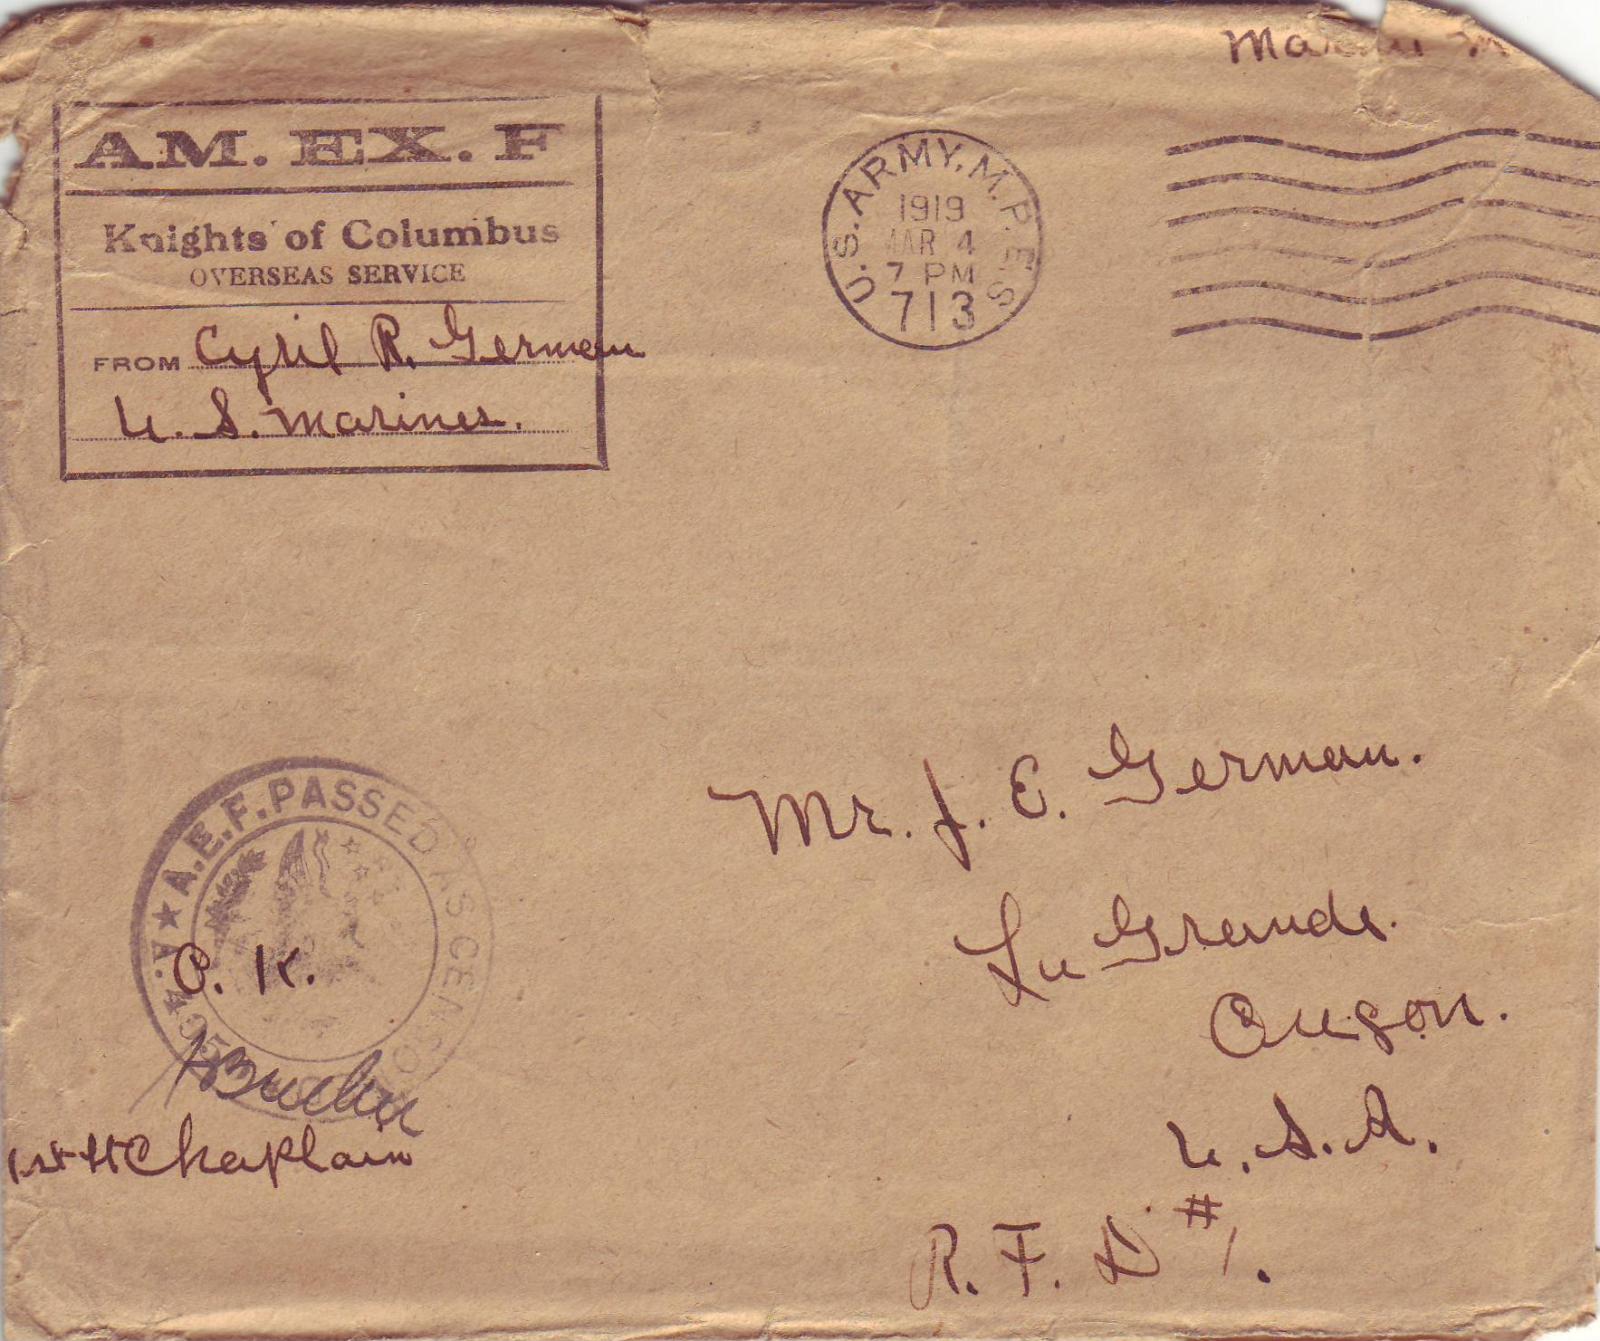 AM. EX. F
Knights of Columbus
OVERSEAS SERVICE
FROM Cyril R. German
U. S. Marines.
U.S. ARMY. M.P.E.S.
1919
MAR 4
7 PM
713
Mr. J. E. German.
La Grande.
Oregon.
U. S. A.
R. F. D #1.
A.E.F. PASSED AS CENSO
O. K.
1st Lt Chaplain